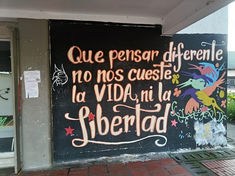 Que pensar diferente
no nos cueste
la VIDA, ni la
libertad